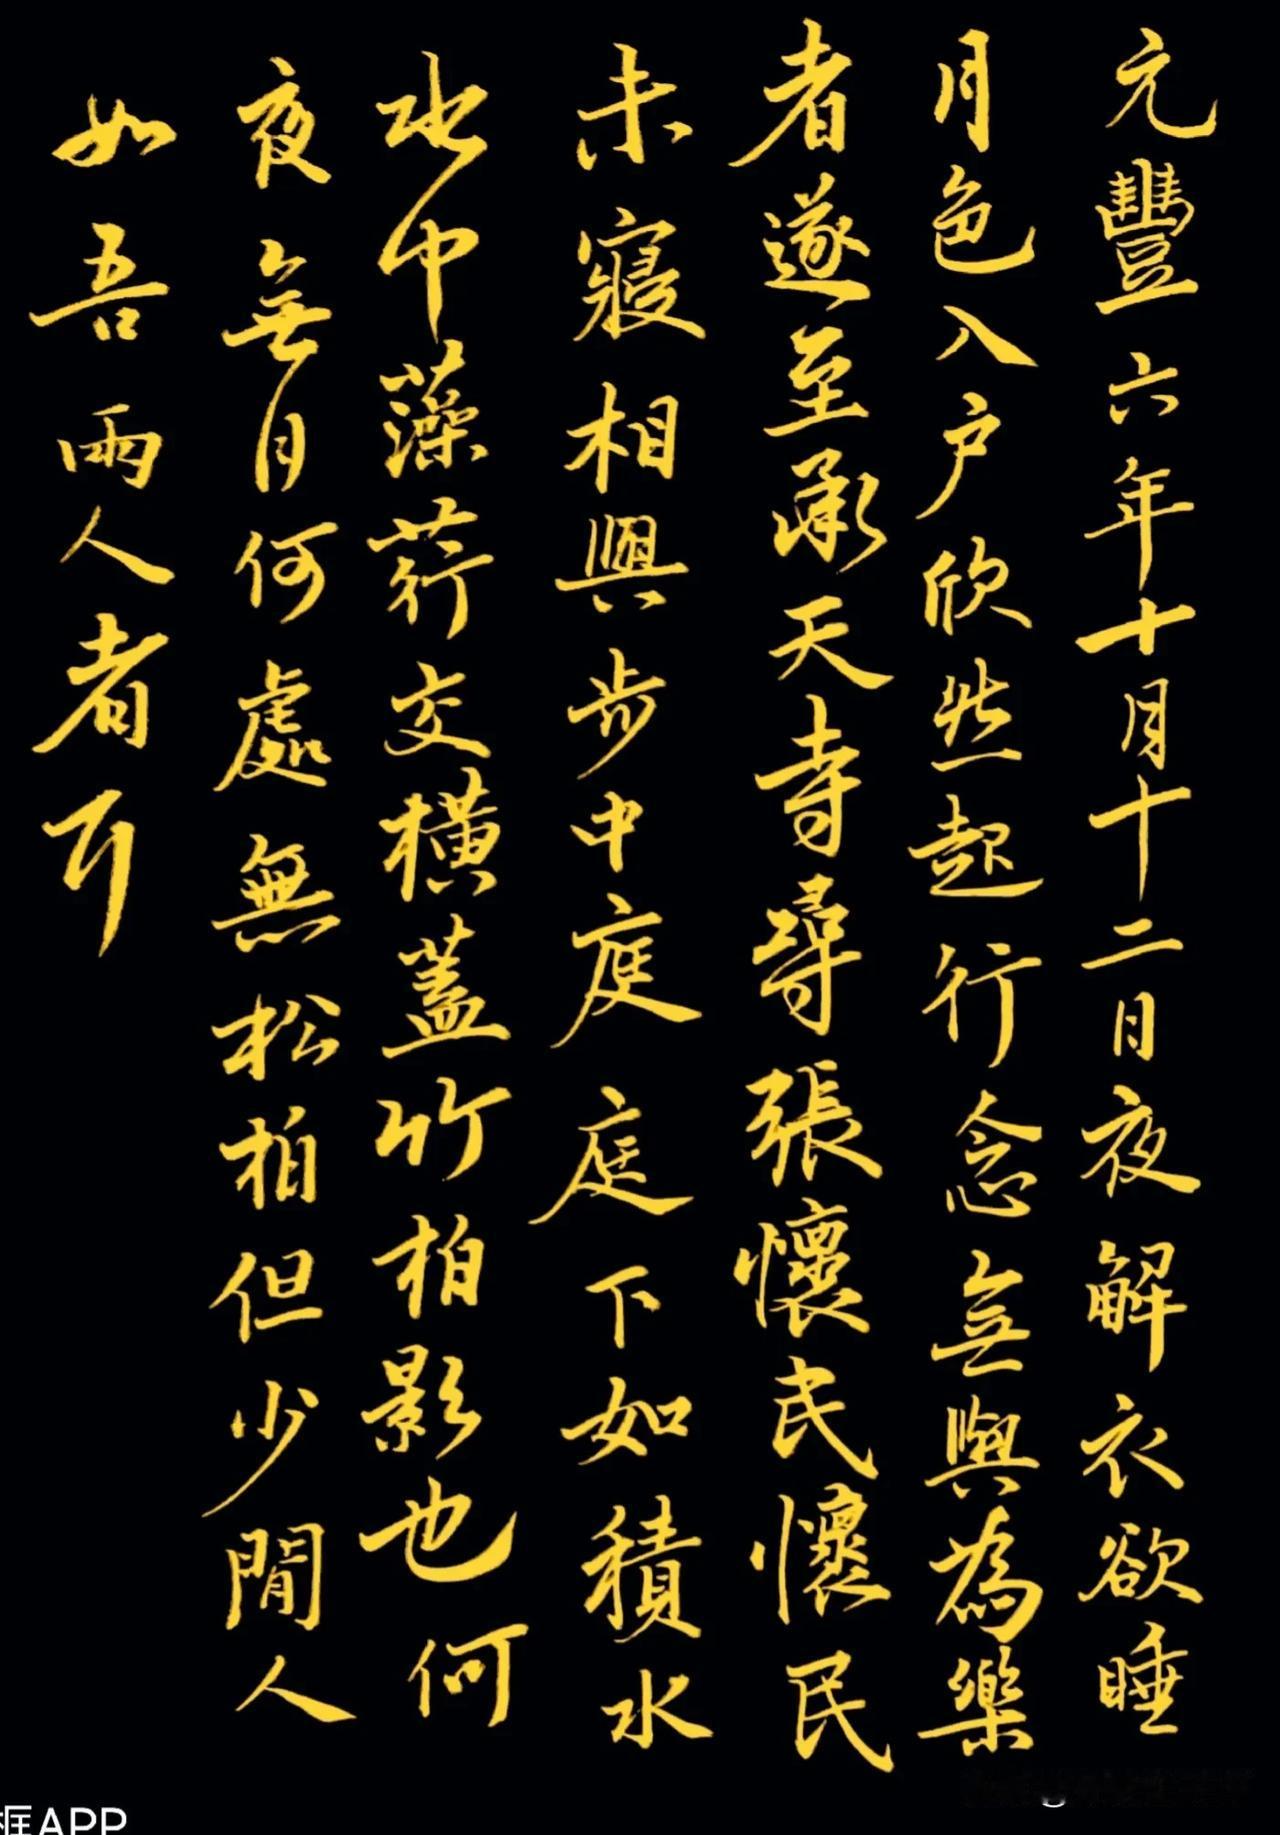 元豐六年十月十二日夜解衣欲睡
月色入户欣然起行念無與為樂
者遂至承天寺尋張懷民懷民
未寢相與步中庭庭下如積水
水中藻荇交橫蓋竹柏影也何
夜無月何處無松柏但少閒人
如吾兩人者耳
框APP